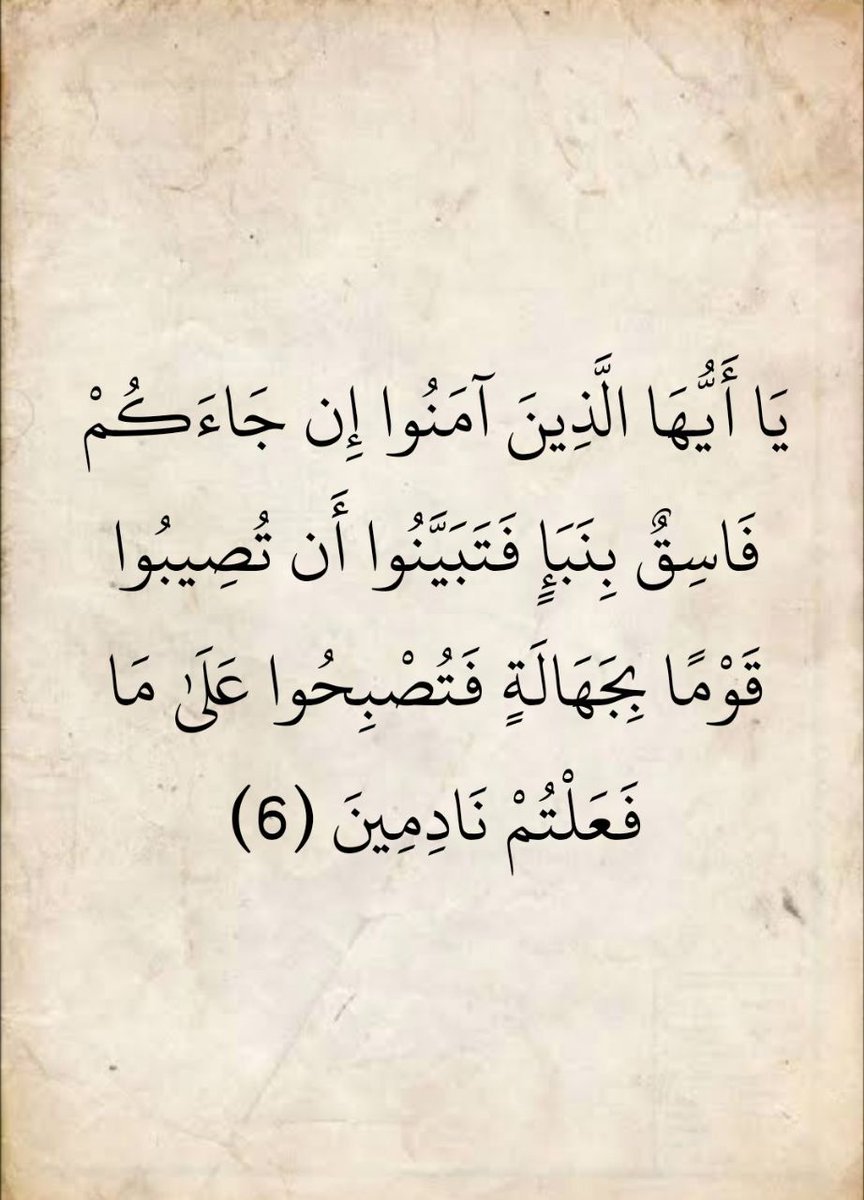 يَا أَيُّهَا الَّذِينَ آمَنُوا إِن جَاءَكُمْ
فَاسِقٌ بِنَبَإٍ فَتَبَيَّنُوا أَن تُصِيبُوا
قَوْمًا بِجَهَالَةٍ فَتُصْبِحُوا عَلَىٰ مَا
فَعَلْتُمْ نَادِمِينَ (6)